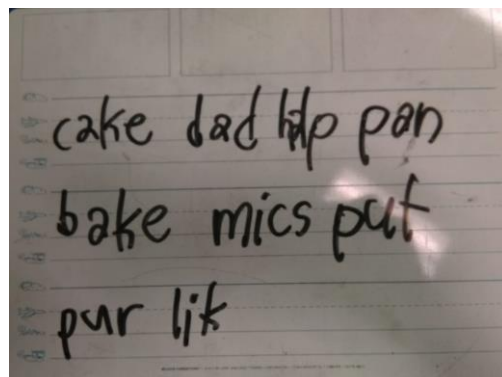 cake dad help pan
bake mics put
pur lik